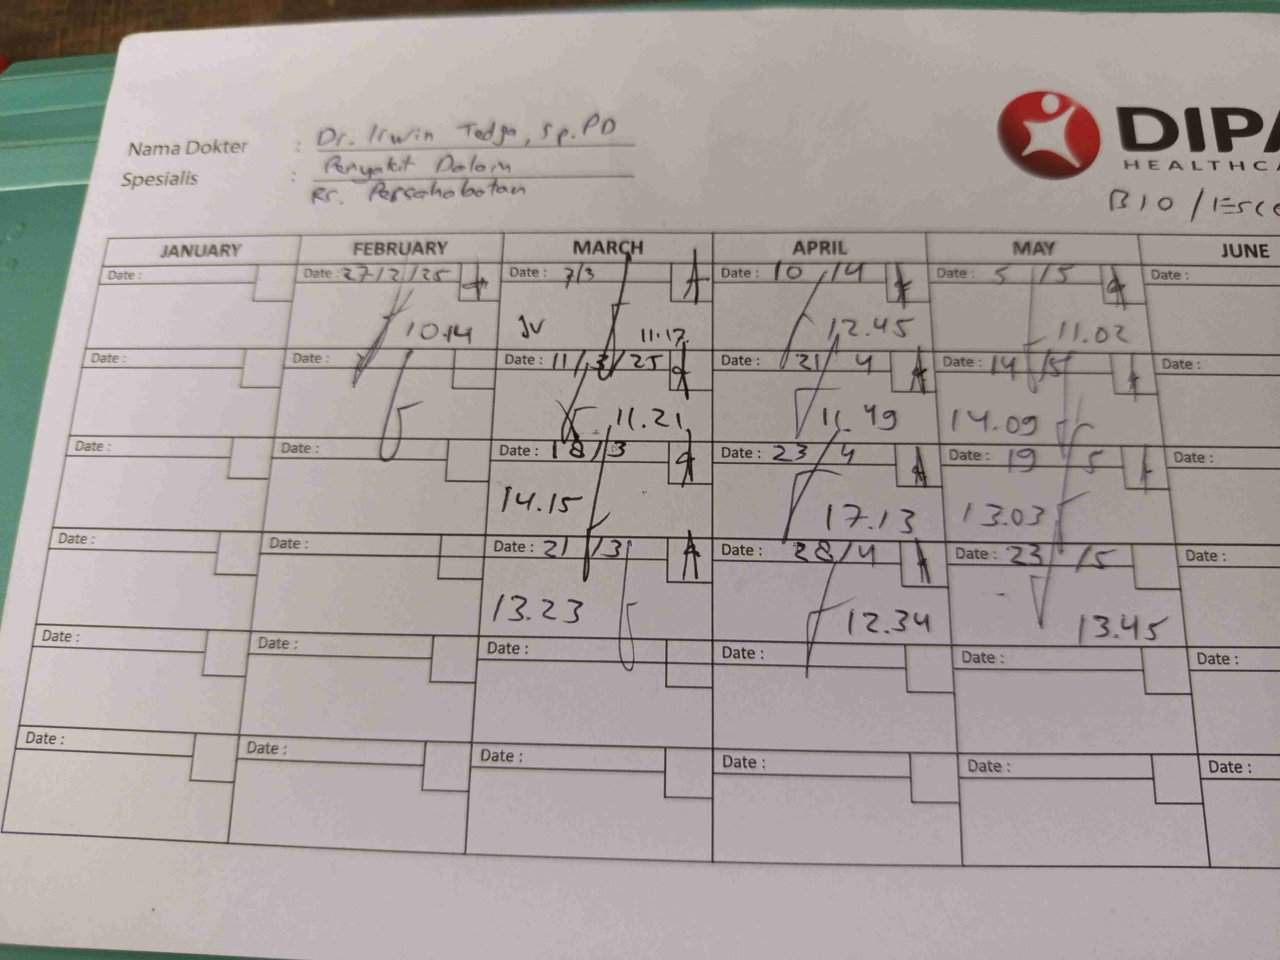 Nama Dokter : Dr. Irwin Tedja, Sp.PD
Spesialis : Penyakit Dalam
Rs. Persahabatan
DIPA
HEALTHCA
B10 /
JANUARY FEBRUARY MARCH APRIL MAY JUNE
Date : Date : 27/2/25 Date : 7/3 Date : 10/4 Date : 5/5 Date :
10.14 JV 11.17 12.45 11.02
Date : Date : Date : 11/3/25 Date : 21 4 Date : 14/5 Date :
11.21 11.49 14.09
Date : Date : Date : 18/3 Date : 23/4 Date : 19 5 Date :
14.15 17.13 13.03
Date : Date : Date : 21/3 Date : 28/4 Date : 23/5 Date :
13.23 12.34 13.45
Date : Date : Date : Date : Date : Date :
Date : Date : Date : Date : Date : Date :